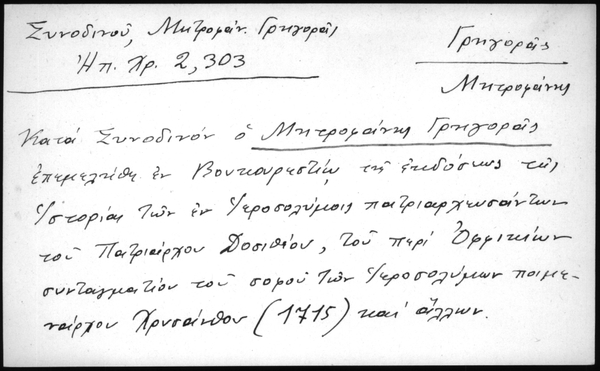 Συνοδινοῦ, Μητροφάν. Γρηγορᾶς
Ἠπ. Χρ. 2, 303
Γρηγορᾶς
Μητροφάνης
Κατά Συνοδινόν ὁ Μητροφάνης Γρηγορᾶς
ἐπεμελήθη ἐν Βουκουρεστίῳ τῆς ἐκδόσεως τῆς
Ἱστορίας τῶν ἐν Ἱεροσολύμοις πατριαρχευσάντων
τοῦ Πατριάρχου Δοσιθέου, τοῦ περί Ὀφφικίων
συνταγματίου τοῦ σοφοῦ τῶν Ἱεροσολύμων ποιμε-
νάρχου Χρυσάνθου (1715) καί ἄλλων.